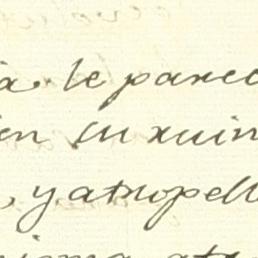 a. le parec
en su ruin
, y atropell